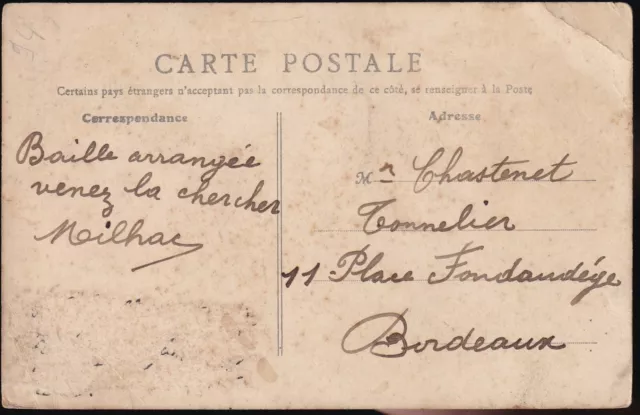 CARTE POSTALE
Certains pays étrangers n'acceptant pas la correspondance de ce côté, se renseigner à la Poste
Correspondance
Baille arrangée
venez la chercher
Milhac
Adresse
Mr Chastenet
Tonnelier
11 Place Fondaudége
Bordeaux